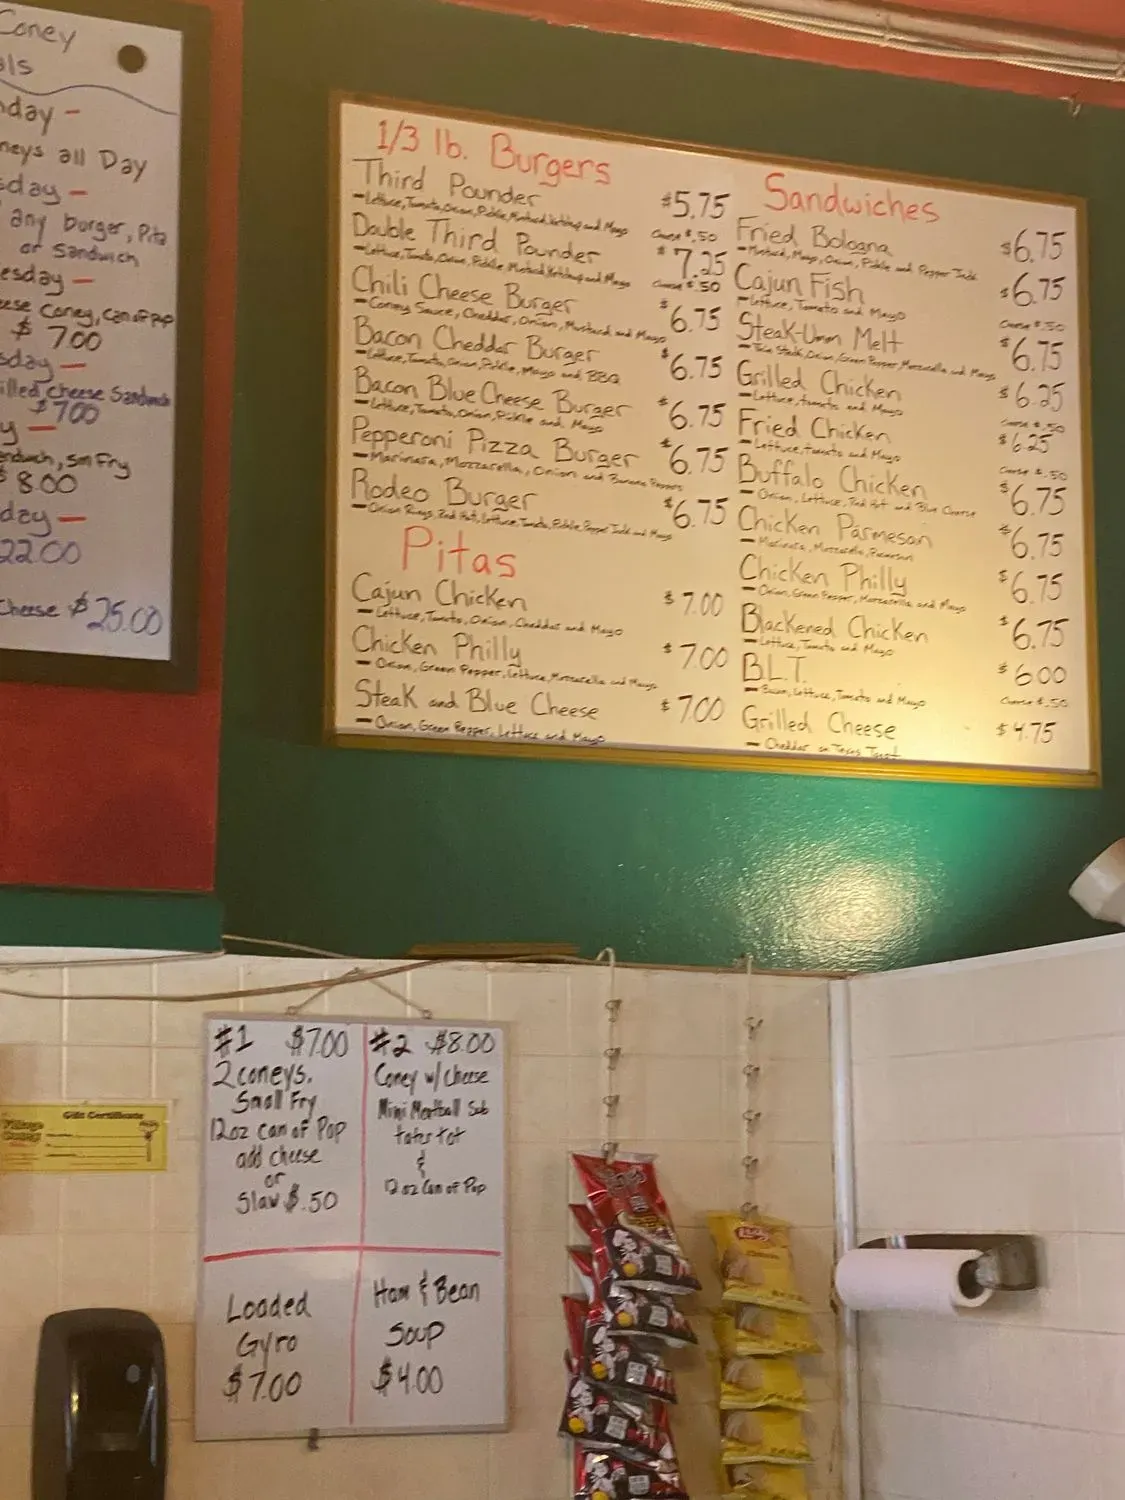 Coney
als
nday -
neys all Day
sday -
any burger, Pita
or Sandwich
esday -
ese Coney, can of pop
$ 7.00
sday -
illed cheese Sandwich
$7.00
y -
ndwich, sm Fry
$ 8.00
day -
22.00
Cheese $25.00
1/3 lb. Burgers
Third Pounder $5.75
- Lettuce, Tomato, Onion, Pickle, Mustard, Ketchup and Mayo Cheese $.50
Double Third Pounder $7.25
- Lettuce, Tomato, Onion, Pickle, Mustard, Ketchup and Mayo Cheese $.50
Chili Cheese Burger $6.75
- Coney Sauce, Cheddar, Onion, Mustard and Mayo
Bacon Cheddar Burger $6.75
- Lettuce, Tomato, Onion, Pickle, Mayo and BBQ
Bacon Blue Cheese Burger $6.75
- Lettuce, Tomato, Onion, Pickle and Mayo
Pepperoni Pizza Burger $6.75
- Marinara, Mozzarella, Onion and Banana Peppers
Rodeo Burger $6.75
- Onion Rings, Red Hot, Lettuce, Tomato, Pickle, Pepper Jack and Mayo
Pitas
Cajun Chicken $7.00
- Lettuce, Tomato, Onion, Cheddar and Mayo
Chicken Philly $7.00
- Onion, Green Pepper, Lettuce, Mozzarella and Mayo
Steak and Blue Cheese $7.00
- Onion, Green Pepper, Lettuce and Mayo
Sandwiches
Fried Bologna $6.75
- Mustard, Mayo, Onion, Pickle and Pepper Jack
Cajun Fish $6.75
- Lettuce, Tomato and Mayo Cheese $.50
Steak-Umm Melt $6.75
- Thin Steak, Onion, Green Pepper, Mozzarella and Mayo
Grilled Chicken $6.25
- Lettuce, tomato and Mayo Cheese $.50
Fried Chicken $6.25
- Lettuce, tomato and Mayo Cheese $.50
Buffalo Chicken $6.75
- Onion, Lettuce, Red Hot and Blue Cheese
Chicken Parmesan $6.75
- Marinara, Mozzarella, Parmesan
Chicken Philly $6.75
- Onion, Green Pepper, Mozzarella and Mayo
Blackened Chicken $6.75
- Lettuce, Tomato and Mayo
B.L.T. $6.00
- Bacon, Lettuce, Tomato and Mayo Cheese $.50
Grilled Cheese $4.75
- Cheddar on Texas Toast
Gift Certificate
Village
Coney
#1 $7.00
2 coneys.
Small Fry
12oz can of Pop
add cheese
or
Slaw $.50
#2 $8.00
Coney w/ cheese
Mini Meatball Sub
tater tot
&
12 oz Can of Pop
Loaded
Gyro
$7.00
Ham & Bean
Soup
$4.00
Lay's